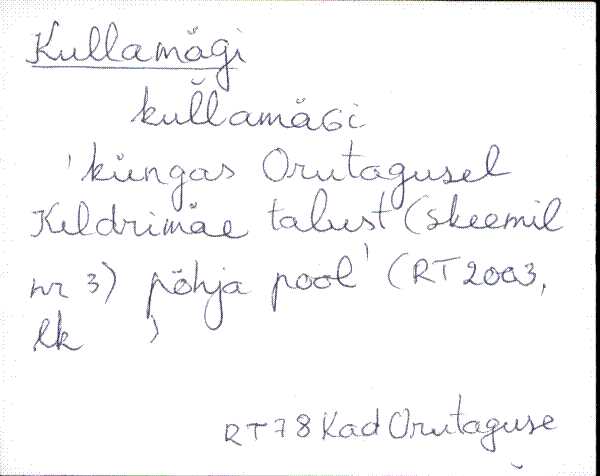 Kullamägi
kul̆lamäGi
'küngas Orutagusel
Keldrimäe talust (skeemil
nr 3) põhja pool' (RT 2003,
lk     )
RT 78 Kad Orutaguse